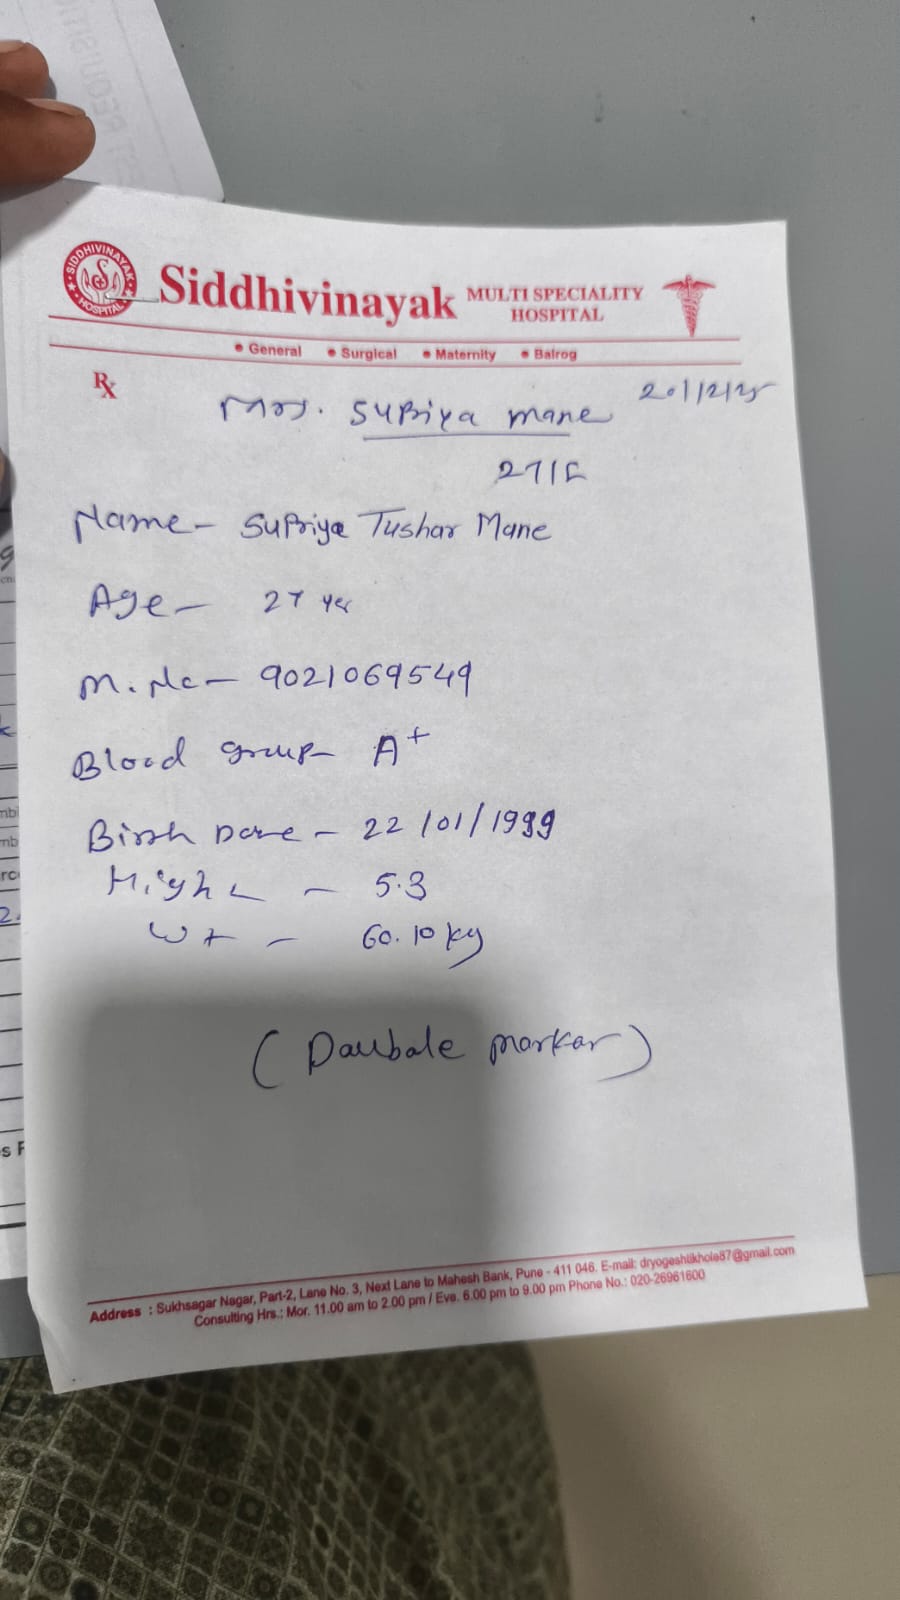 SIDDHIVINAYAK
HOSPITAL
Siddhivinayak MULTI SPECIALITY
HOSPITAL
• General • Surgical • Maternity • Balrog
Rx
20/12/25
Mrs. Supriya mane
27/F
Name - Supriya Tushar Mane
Age - 27 yer
M. No - 9021069549
Blood group - A+
Birth Date - 22/01/1999
High - 5.3
Wt - 60.10 kg
(Daubale markar)
Address : Sukhsagar Nagar, Part-2, Lane No. 3, Next Lane to Mahesh Bank, Pune - 411 046. E-mail: dryogeshtikhole87@gmail.com
Consulting Hrs.: Mor. 11.00 am to 2.00 pm / Eve. 6.00 pm to 9.00 pm Phone No.: 020-26961600